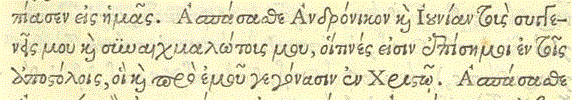 πίασεν εἰς ἡμᾶς. Ἀσπάσασθε Ἀνδρόνικον κὴ Ἰουνίαν τοὺς συγγε-
νεῖς μου κὴ συναιχμαλώτοις μου, οἵτινές εἰσιν ἐπίσημοι ἐν τοῖς
ἀποστόλοις, οἳ κὴ πρὸ ἐμοῦ γεγόνασιν ἐν Χριστῷ. Ἀσπάσασθε